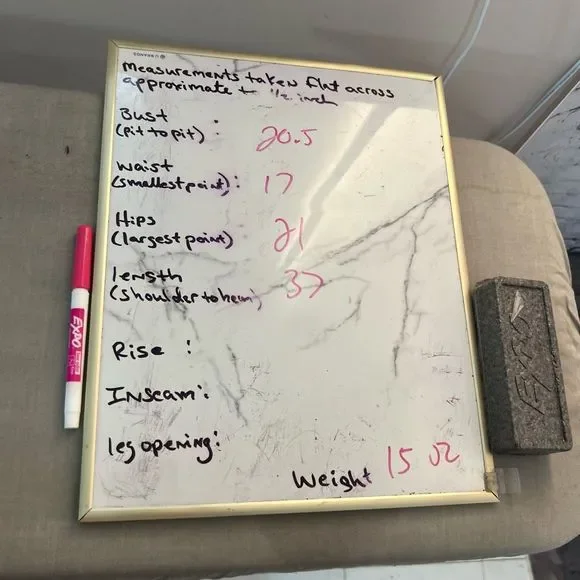 measurements taken flat across
approximate ± 1/2 inch
Bust
(pit to pit) : 20.5
waist
(smallest point): 17
Hips
(largest point) 21
length
(shoulder to hem) 37
Rise :
Inseam:
leg opening:
Weight 15 oz
EXPO
EXPO